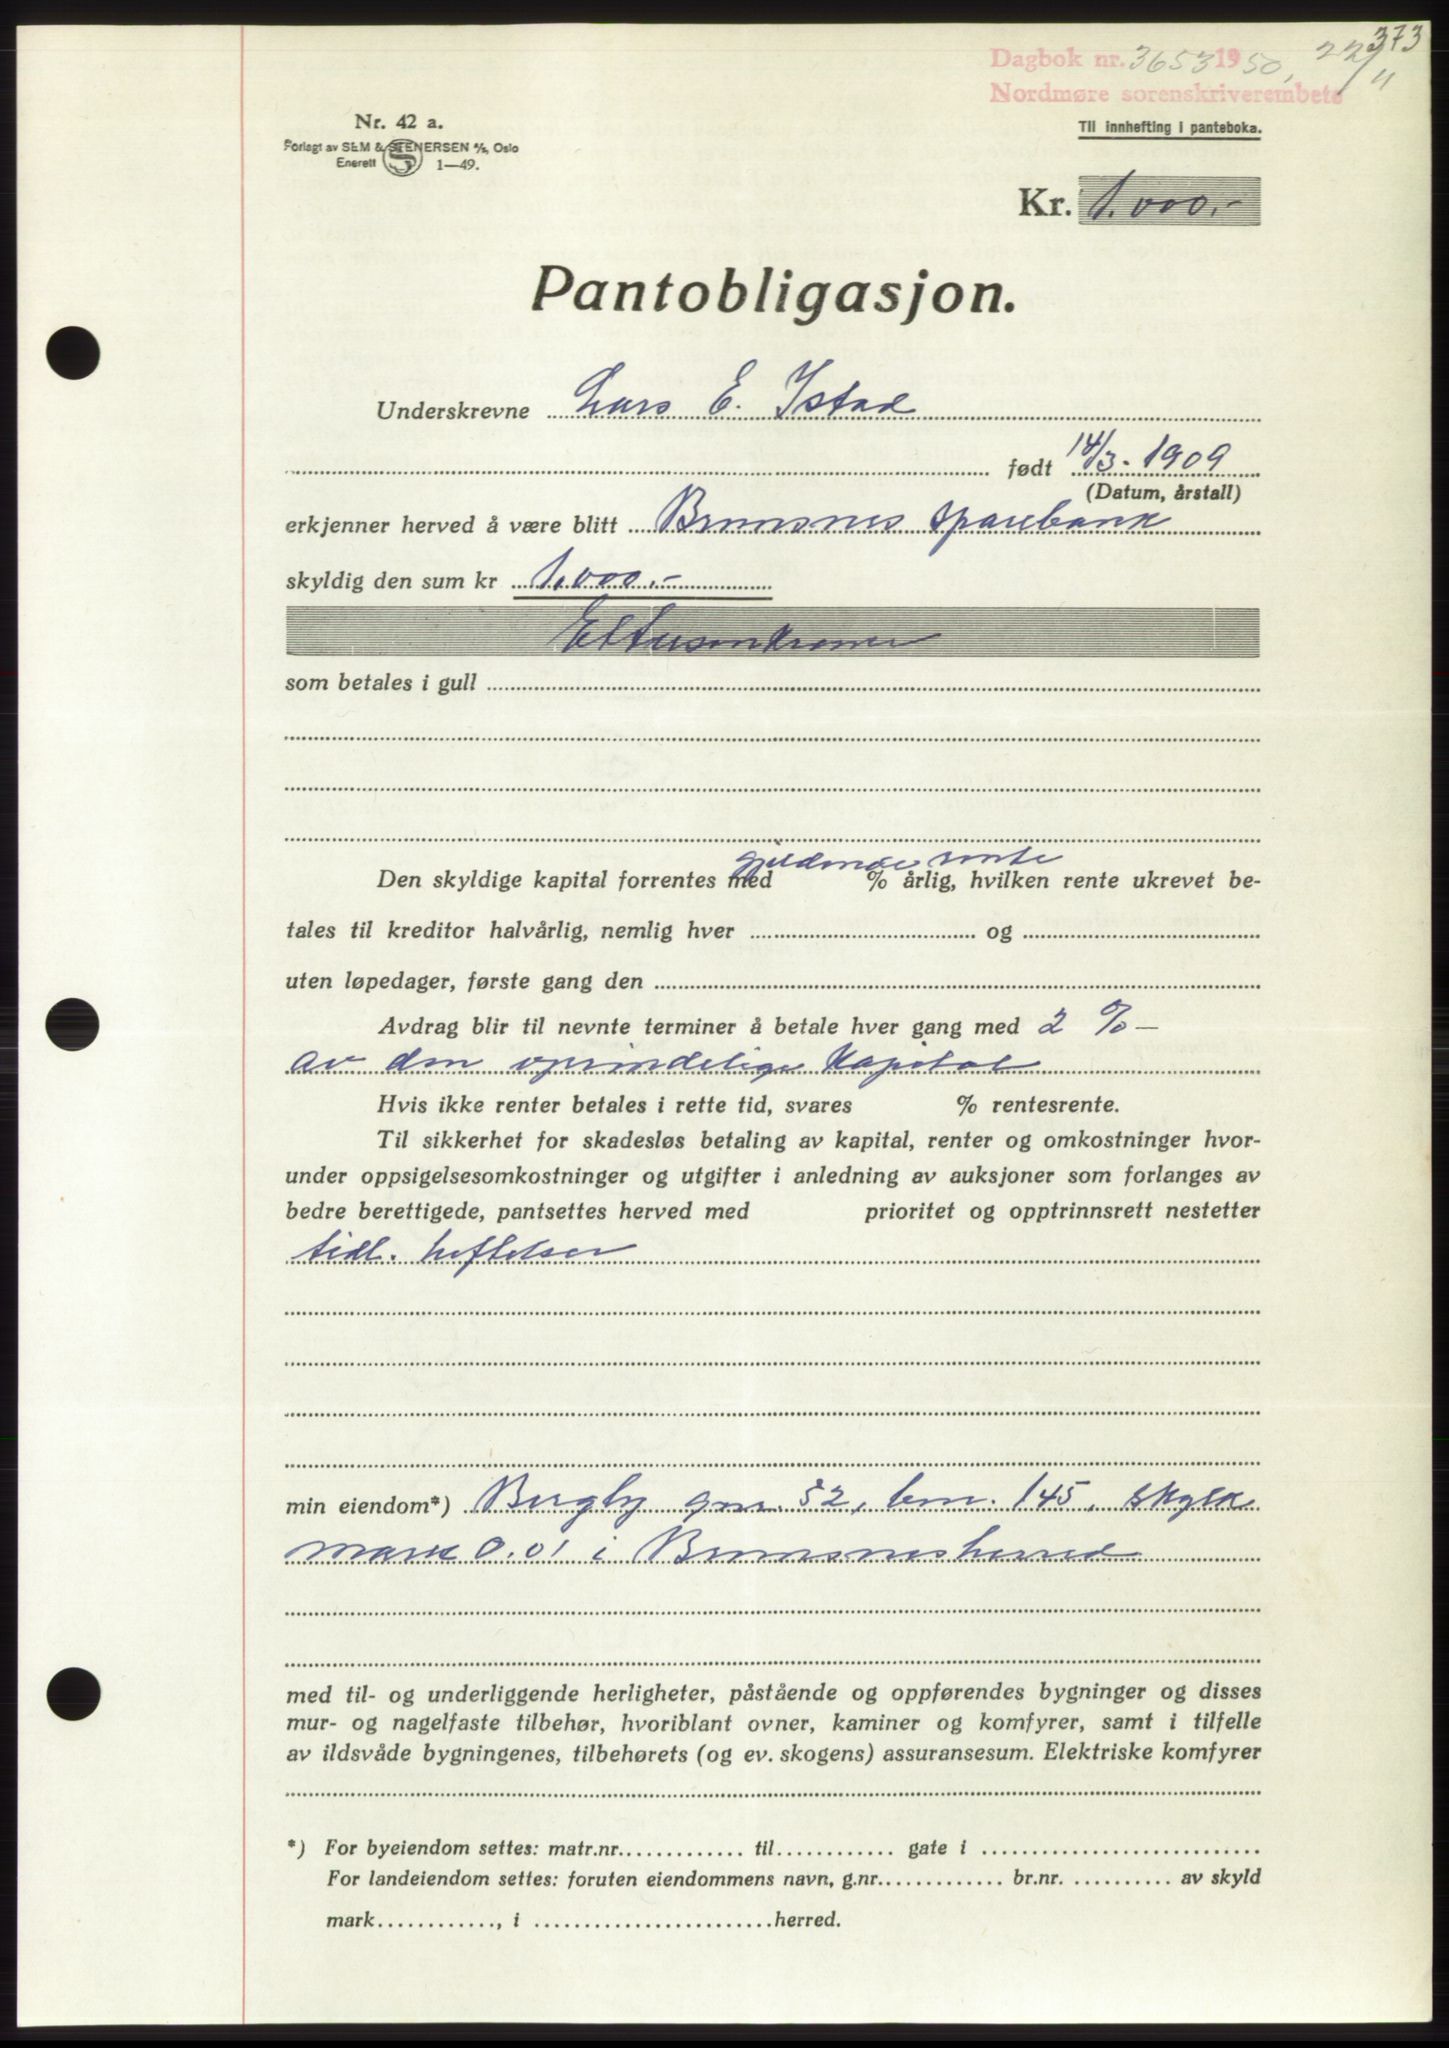 373
Dagbok nr. 3653 1950, 22/11
Nordmøre sorenskriverembete
Til innhefting i panteboka.
Nr. 42 a.
Forlagt av SEM & STENERSEN A/S, Oslo
Enerett 1—49.
Kr. 1.000.-
Pantobligasjon.
Underskrevne Lars E. Istad
født 14/3. 1909
(Datum, årstall)
erkjenner herved å være blitt Bremsnes sparebank
skyldig den sum kr 1.000.-
Ettusenkroner
som betales i gull
gjeldende rente
Den skyldige kapital forrentes med % årlig, hvilken rente ukrevet be-
tales til kreditor halvårlig, nemlig hver og
uten løpedager, første gang den
Avdrag blir til nevnte terminer å betale hver gang med 2 % —
av den oprindelige kapital
Hvis ikke renter betales i rette tid, svares % rentesrente.
Til sikkerhet for skadesløs betaling av kapital, renter og omkostninger hvor-
under oppsigelsesomkostninger og utgifter i anledning av auksjoner som forlanges av
bedre berettigede, pantsettes herved med prioritet og opptrinnsrett nestetter
tidl. heftelser
min eiendom*) Bergly gnr. 52, bnr. 145, skyld
mark 0.01 i Bremsnes herred
med til- og underliggende herligheter, påstående og oppførendes bygninger og disses
mur- og nagelfaste tilbehør, hvoriblant ovner, kaminer og komfyrer, samt i tilfelle
av ildsvåde bygningenes, tilbehørets (og ev. skogens) assuransesum. Elektriske komfyrer
*) For byeiendom settes: matr.nr. til gate i
For landeiendom settes: foruten eiendommens navn, g.nr. br.nr. av skyld
mark , i herred.